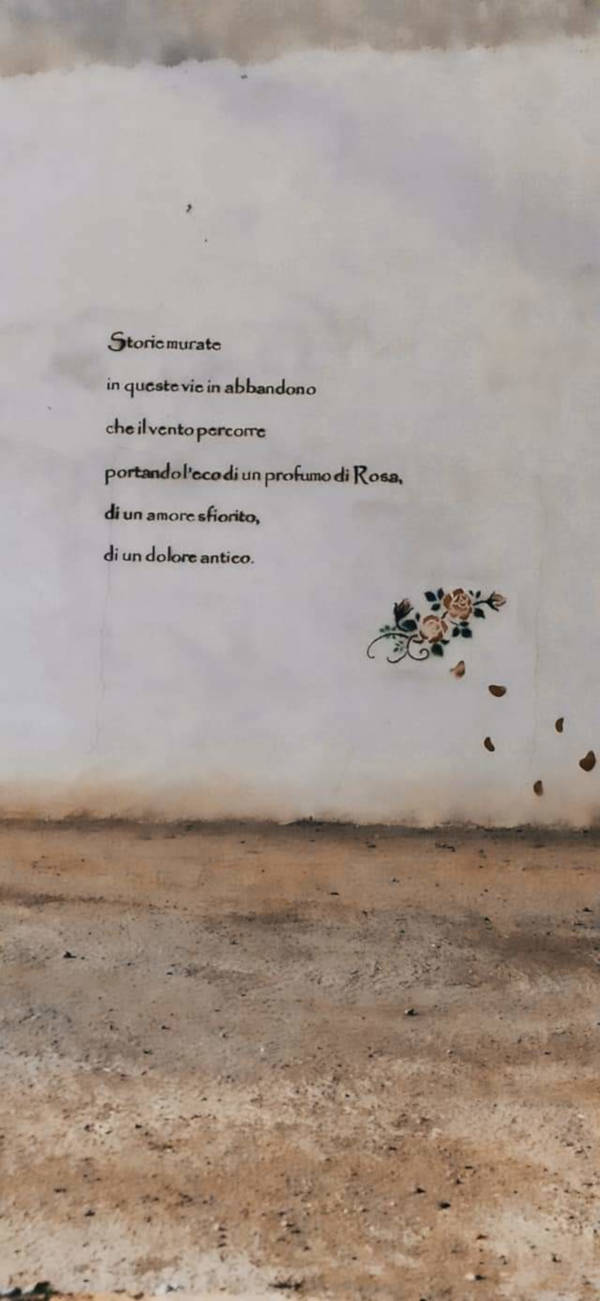 Storie murate
in queste vie in abbandono
che il vento percorre
portando l'eco di un profumo di Rosa,
di un amore sfiorito,
di un dolore antico.